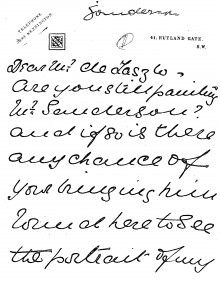 Sanderson
TELEPHONE
2035 KENSINGTON
41, RUTLAND GATE,
S.W.
Dear Mr de László.
Are you still painting
Mr Sanderson?
and if so is there
any chance of
your bringing him
round here to see
the portrait of my